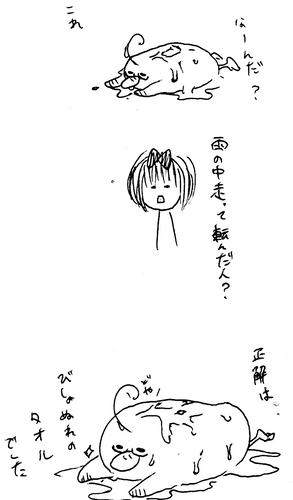 これ
なーんだ？
雨の中走って転んだ人？
正解は
ぎゃ！
びしょぬれの
タオル
でした